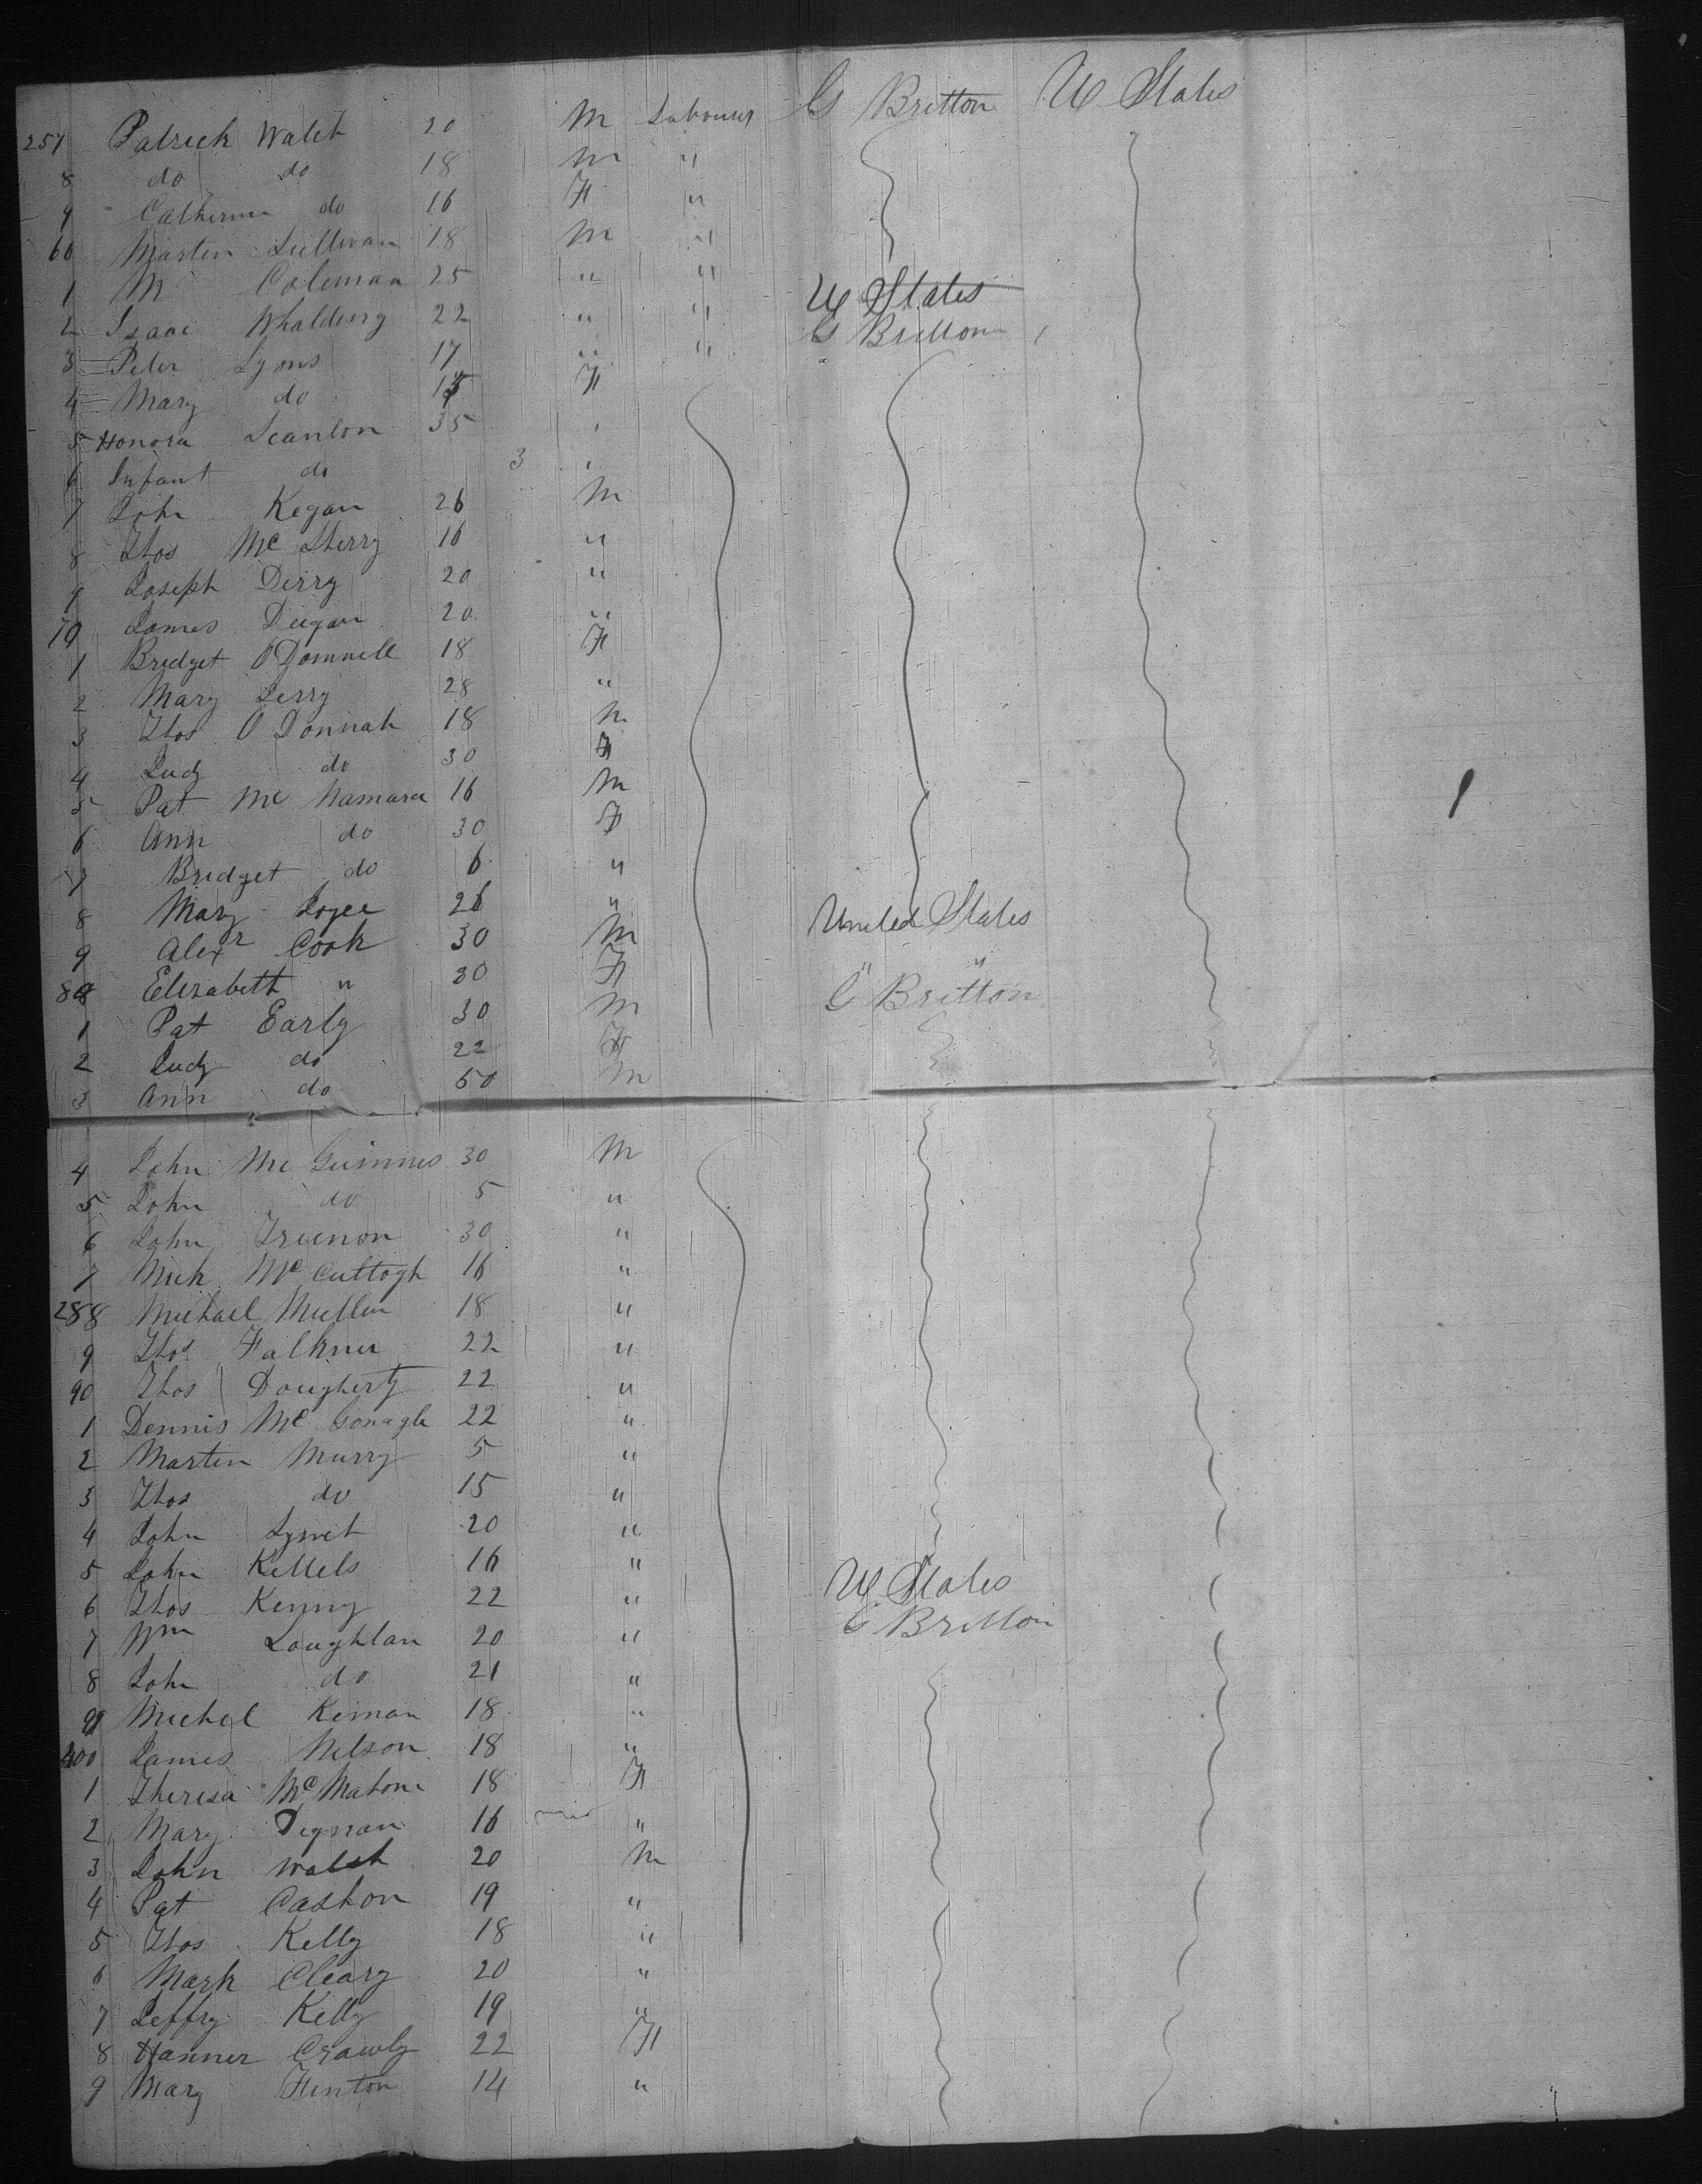 257 Patrick Walsh 20 M Labourer G Britton U States
8 do do 18 M "
9 Catherine do 16 F "
60 Martin Sullivan 18 M "
1 M Coleman 25 " " U States
2 Isaac Whalding 22 " " G Britton
3 Peter Lyons 17 " "
4 Mary do F
5 Honora Scanlon 35
6 Infant do 3
7 John Kegan 26 M
8 Thos Mc Sherry 16 "
9 Joseph Derry 20 "
70 James Dugan 20 "
1 Bridget O Donnell 18 F
2 Mary Derry 28 "
3 Thos O Donnah 18 M
4 Judy do 30 F
5 Pat Mc Namara 16 M
6 Ann do 30 F
7 Bridget do 6 "
8 Mary Joyce 26 "
9 Alexr Cook 30 M United States
80 Elizabeth " 30 F " "
1 Pat Early 30 M G Britton
2 Judy do 22 F
3 Ann do 50 M
4 John Mc Guinnes 30 M
5 John do 5 "
6 John 30 "
7 Mich Mc Cuttogh 16 "
288 Michael Mullin 18 "
9 Thos Falkner 22 "
90 Thos Dougherty 22 "
1 Dennis Mc Gonagle 22 "
2 Martin Murry 5 "
3 Thos do 15 "
4 John 20 "
5 John Kettels 16 " U States
6 Thos Kenny 22 " G Britton
7 Wm Loughlan 20 "
8 John do 21 "
9 Michal Kernan 18 "
400 James Nelson 18 "
1 Theresa Mc Mahone 18 F
2 Mary Dignan 16 "
3 John Walsh 20 M
4 Pat Cashon 19 "
5 Thos Kelly 18 "
6 Mark Cleary 20 "
7 Jeffry Kelly 19 "
8 Hanner Crawly 22 F
9 Mary Finton 14 "